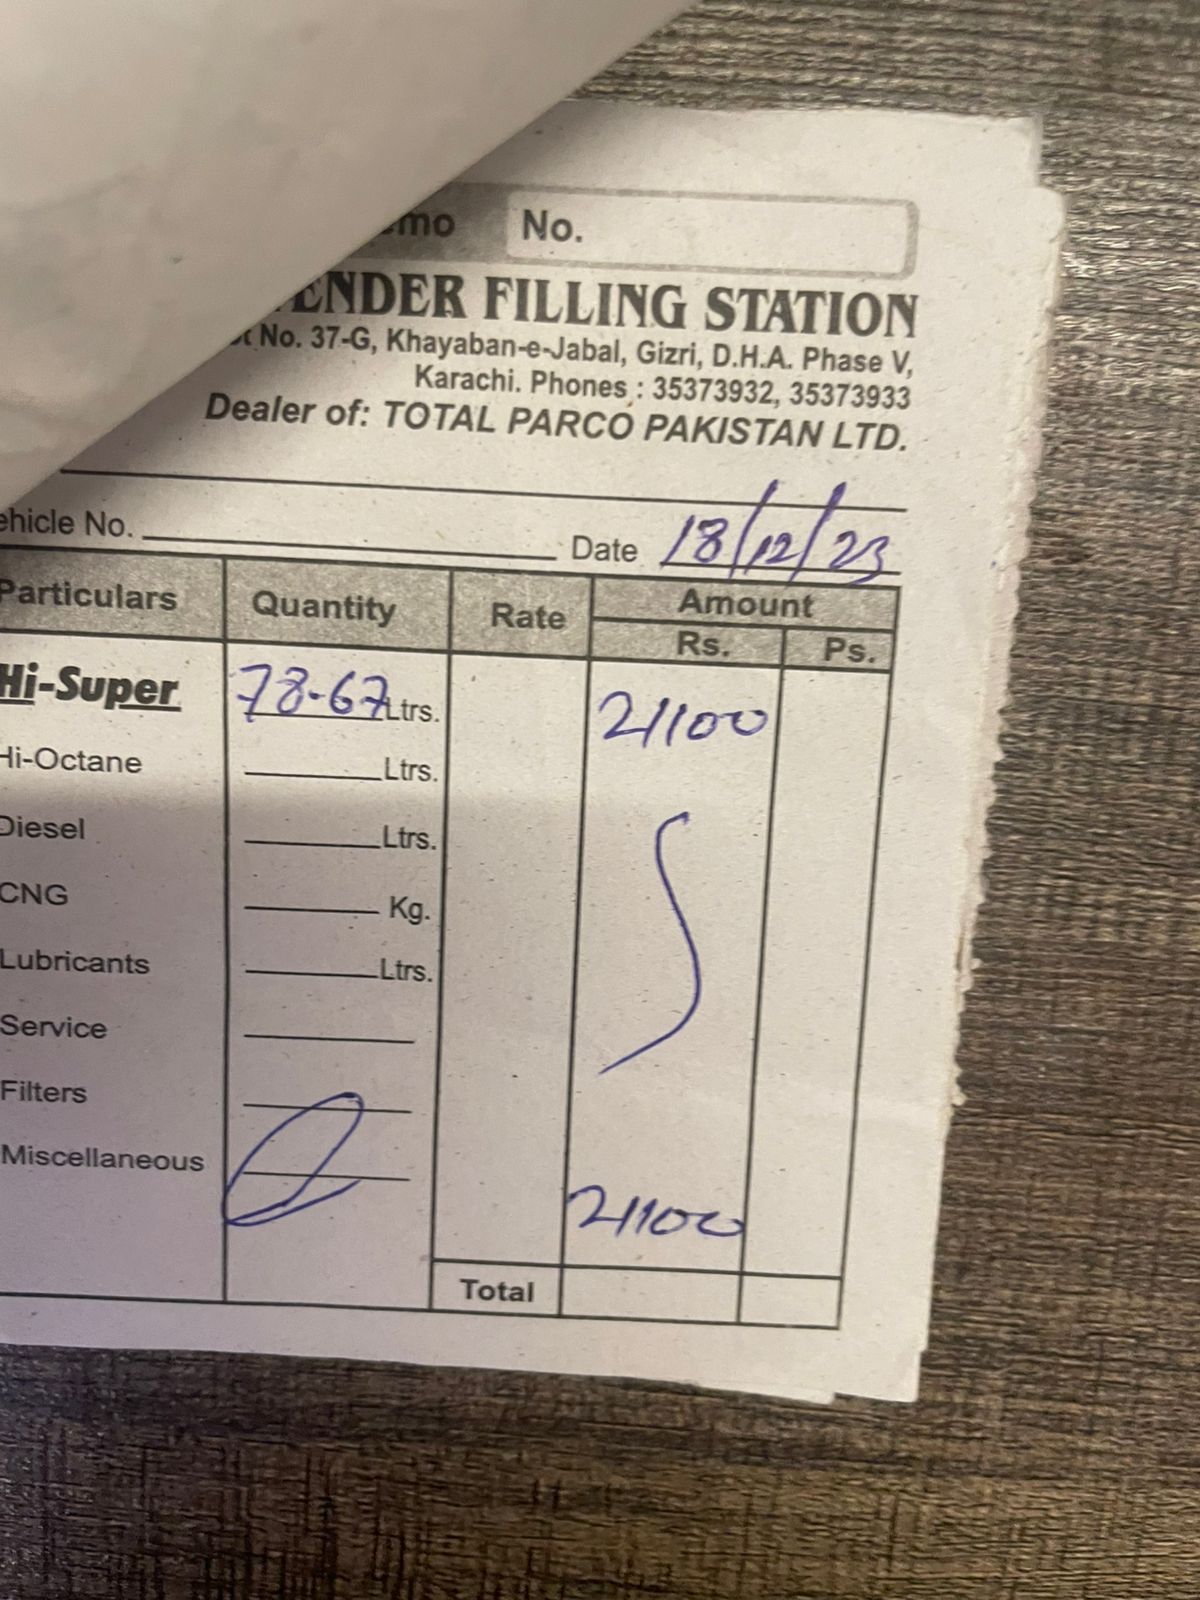 No.
FILLING STATION
No. 37-G, Khayaban-e-Jabal, Gizri, D.H.A. Phase V,
Karachi. Phones : 35373932, 35373933
Dealer of: TOTAL PARCO PAKISTAN LTD.
No. Date 18/12/23
Particulars Quantity Rate Amount
Rs. Ps.
Hi-Super 78-67 Ltrs. 21100
Hi-Octane Ltrs.
Diesel Ltrs.
CNG Kg.
Lubricants Ltrs.
Service
Filters
Miscellaneous
21100
Total